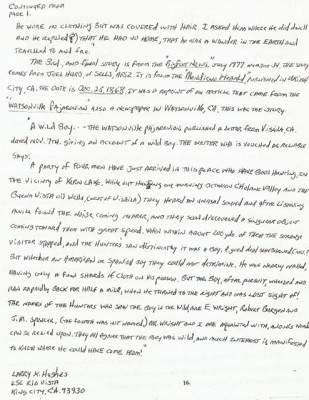 CONTINUED FROM
PAGE 1.
HE WORE NO CLOTHING BUT WAS COVERED WITH HAIR. I ASKED HIM WHERE HE DID DWELL
AND HE REPLIED THAT HE HAD NO HOME, THAT HE WAS A WANDERER IN THE EARTH AND
TRAVELLED TO AND FRO."
THE 3RD, AND FINAL STORY IS FROM THE BIGFOOT NEWS, JULY 1977, NUMBER 34. THE STORY
COMES FROM JOEL HURD, OF SELLS, ARIZ. IT IS FROM THE MENDOCINO HERALD, PUBLISHED IN UKIAH
CITY, CA. THE DATE IS DEC. 25, 1868. IT WAS A REPORT OF AN ARTICLE THAT CAME FROM THE
"WATSONVILLE PAJARONIAN" ALSO A NEWSPAPER IN WATSONVILLE, CA. THIS WAS THE STORY.
"A WILD BOY. -- THE WATSONVILLE PAJARONIAN PUBLISHED A LETTER FROM VISALIA, CA.
DATED NOV. 7TH. GIVING AN ACCOUNT OF A WILD BOY. THE WRITER WHO IS VOUCHED AS RELIABLE
SAYS:
A PARTY OF FOUR MEN HAVE JUST ARRIVED IN THIS PLACE WHO HAVE BEEN HUNTING, IN
THE VICINITY OF KERN LAKE. WHILE OUT HUNTING ONE MORNING BETWEEN CHOLAME VALLEY AND THE
BUENA VISTA OIL WELLS (WEST OF VISALIA) THEY HEARD AN UNUSUAL SOUND AND AFTER LISTENING
AWHILE FOUND THE NOISE COMING NEARER, AND THEY SOON DISCOVERED A SINGULAR OBJECT
COMING TOWARD THEM WITH GREAT SPEED. WHEN WITHIN ABOUT 200 YDS. OF THEM THE STRANGE
VISITOR STOPPED, AND THE HUNTERS SAW DISTINCTLY IT WAS A BOY, A GOOD DEAL SUNBURNED
BUT WHETHER AN AMERICAN OR SPANISH BOY THEY COULD NOT DETERMINE. HE WAS NEARLY NAKED,
HAVING ONLY A FEW SHREDS OF CLOTH ON HIS PERSON. BUT THE BOY, AFTER PURSUIT, WHEELED AND
RAN RAPIDLY BACK FOR HALF A MILE, WHEN HE TURNED TO THE RIGHT AND WAS LOST SIGHT OF!
THE NAMES OF THE HUNTERS WHO SAW THE BOY IS THE WILD ARE E. WRIGHT, ROBERT AND
J.M. SPENCER, (THE FOURTH WAS NOT NAMED) MR. WRIGHT AND I ARE AQUAINTED WITH, WHOSE WORD
CAN BE RELIED UPON. THEY ALL AGREE THAT THE BOY WAS WILD, AND MUCH INTEREST IS MANIFESTED
TO KNOW WHERE HE COULD HAVE COME FROM!"
LARRY K. HUGHES
ESC RIO VISTA
KING CITY, CA. 93930
16.